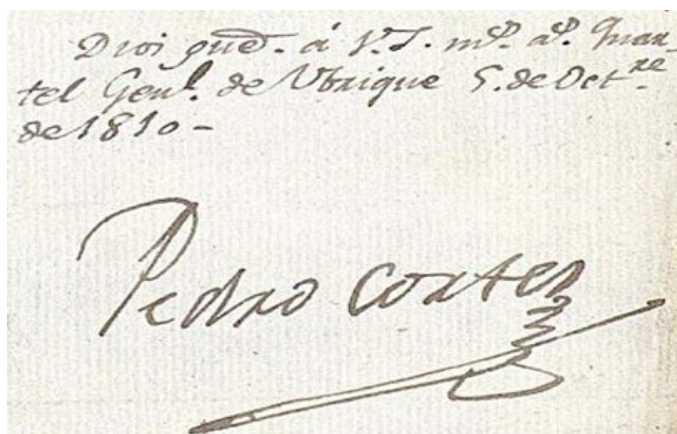 Dios gue. á V.S. ms. as. Quar-
tel Genl. de Ubrique 5. de Octre.
de 1810-
Pedro Cortes